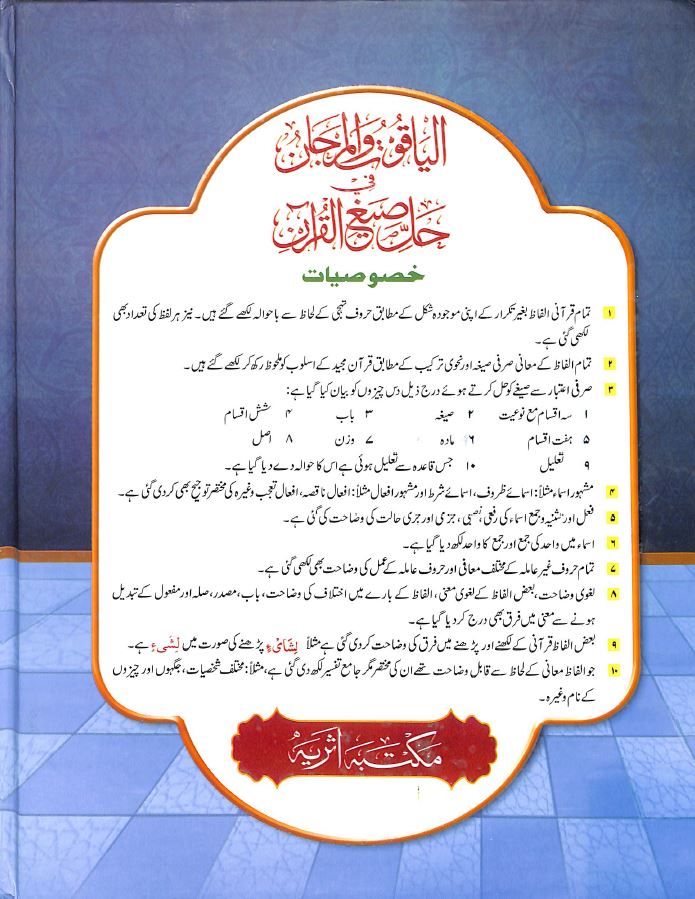 الیاقوت والمرجان
فی
حل صیغ القرآن
خصوصیات
۱ تمام قرآنی الفاظ بغیر تکرار کے اپنی موجودہ شکل کے مطابق حروف تہجی کے لحاظ سے باحوالہ لکھے گئے ہیں۔ نیز ہر لفظ کی تعداد بھی
لکھی گئی ہے۔
۲ تمام الفاظ کے معانی صرفی صیغہ اور نحوی ترکیب کے مطابق قرآن مجید کے اسلوب کو ملحوظ رکھ کر لکھے گئے ہیں۔
۳ صرفی اعتبار سے صیغے کو حل کرتے ہوئے درج ذیل دس چیزوں کو بیان کیا گیا ہے:
۱ سہ اقسام مع نوعیت ۲ صیغہ ۳ باب ۴ شش اقسام
۵ ہفت اقسام ۶ مادہ ۷ وزن ۸ اصل
۹ تعلیل ۱۰ جس قاعدہ سے تعلیل ہوئی ہے اس کا حوالہ دے دیا گیا ہے۔
۴ مشہور اسماء مثلاً: اسمائے ظروف، اسمائے شرط اور مشہور افعال مثلاً: افعال ناقصہ، افعال تعجب وغیرہ کی مختصر توجیح بھی کر دی گئی ہے۔
۵ فعل اور تثنیہ و جمع اسماء کی رفعی، نصبی، جزمی اور جری حالت کی وضاحت کی گئی ہے۔
۶ اسماء میں واحد کی جمع اور جمع کا واحد لکھ دیا گیا ہے۔
۷ تمام حروف غیر عاملہ کے مختلف معانی اور حروف عاملہ کے عمل کی وضاحت بھی لکھی گئی ہے۔
۸ لغوی وضاحت، بعض الفاظ کے لغوی معنی، الفاظ کے بارے میں اختلاف کی وضاحت، باب، مصدر، صلہ اور مفعول کے تبدیل
ہونے سے معنی میں فرق بھی درج کر دیا گیا ہے۔
۹ بعض الفاظ قرآنی کے لکھنے اور پڑھنے میں فرق کی وضاحت کر دی گئی ہے مثلاً لِشَایْءٍ پڑھنے کی صورت میں لِشَیْءٍ ہے۔
۱۰ جو الفاظ معانی کے لحاظ سے قابل وضاحت تھے ان کی مختصر مگر جامع تفسیر لکھ دی گئی ہے، مثلاً: مختلف شخصیات، جگہوں اور چیزوں
کے نام وغیرہ۔
مکتبہ اثریہ